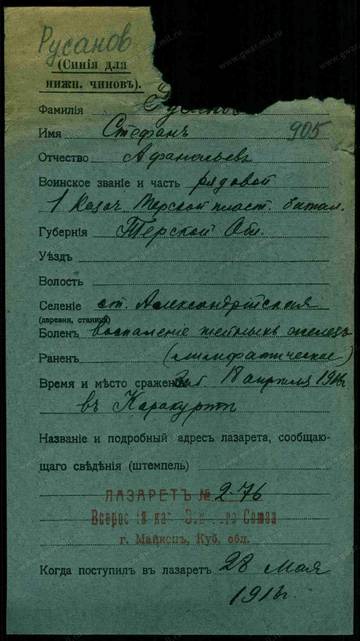 Русанов
(Синія для
нижн. чиновъ).
Фамилія Русановъ
Имя Стефанъ 905
Отчество Афанасьевъ
Воинское званіе и часть рядовой
1 Казач. Терской пласт. батал.
Губернія Терской Об.
Уѣздъ
Волость
Селеніе ст. Александрійская
(деревня, станица)
Боленъ воспаленіе шейныхъ железъ
Раненъ (лимфатическое)
Время и мѣсто сраженія 18 апрѣля 1916
въ Каракуртъ
Названіе и подробный адресъ лазарета, сообщаю-
щаго свѣдѣнія (штемпель)
ЛАЗАРЕТЪ № 2-76
Союза
г. Майкопъ, Куб. обл.
Когда поступилъ въ лазаретъ 28 мая
1916